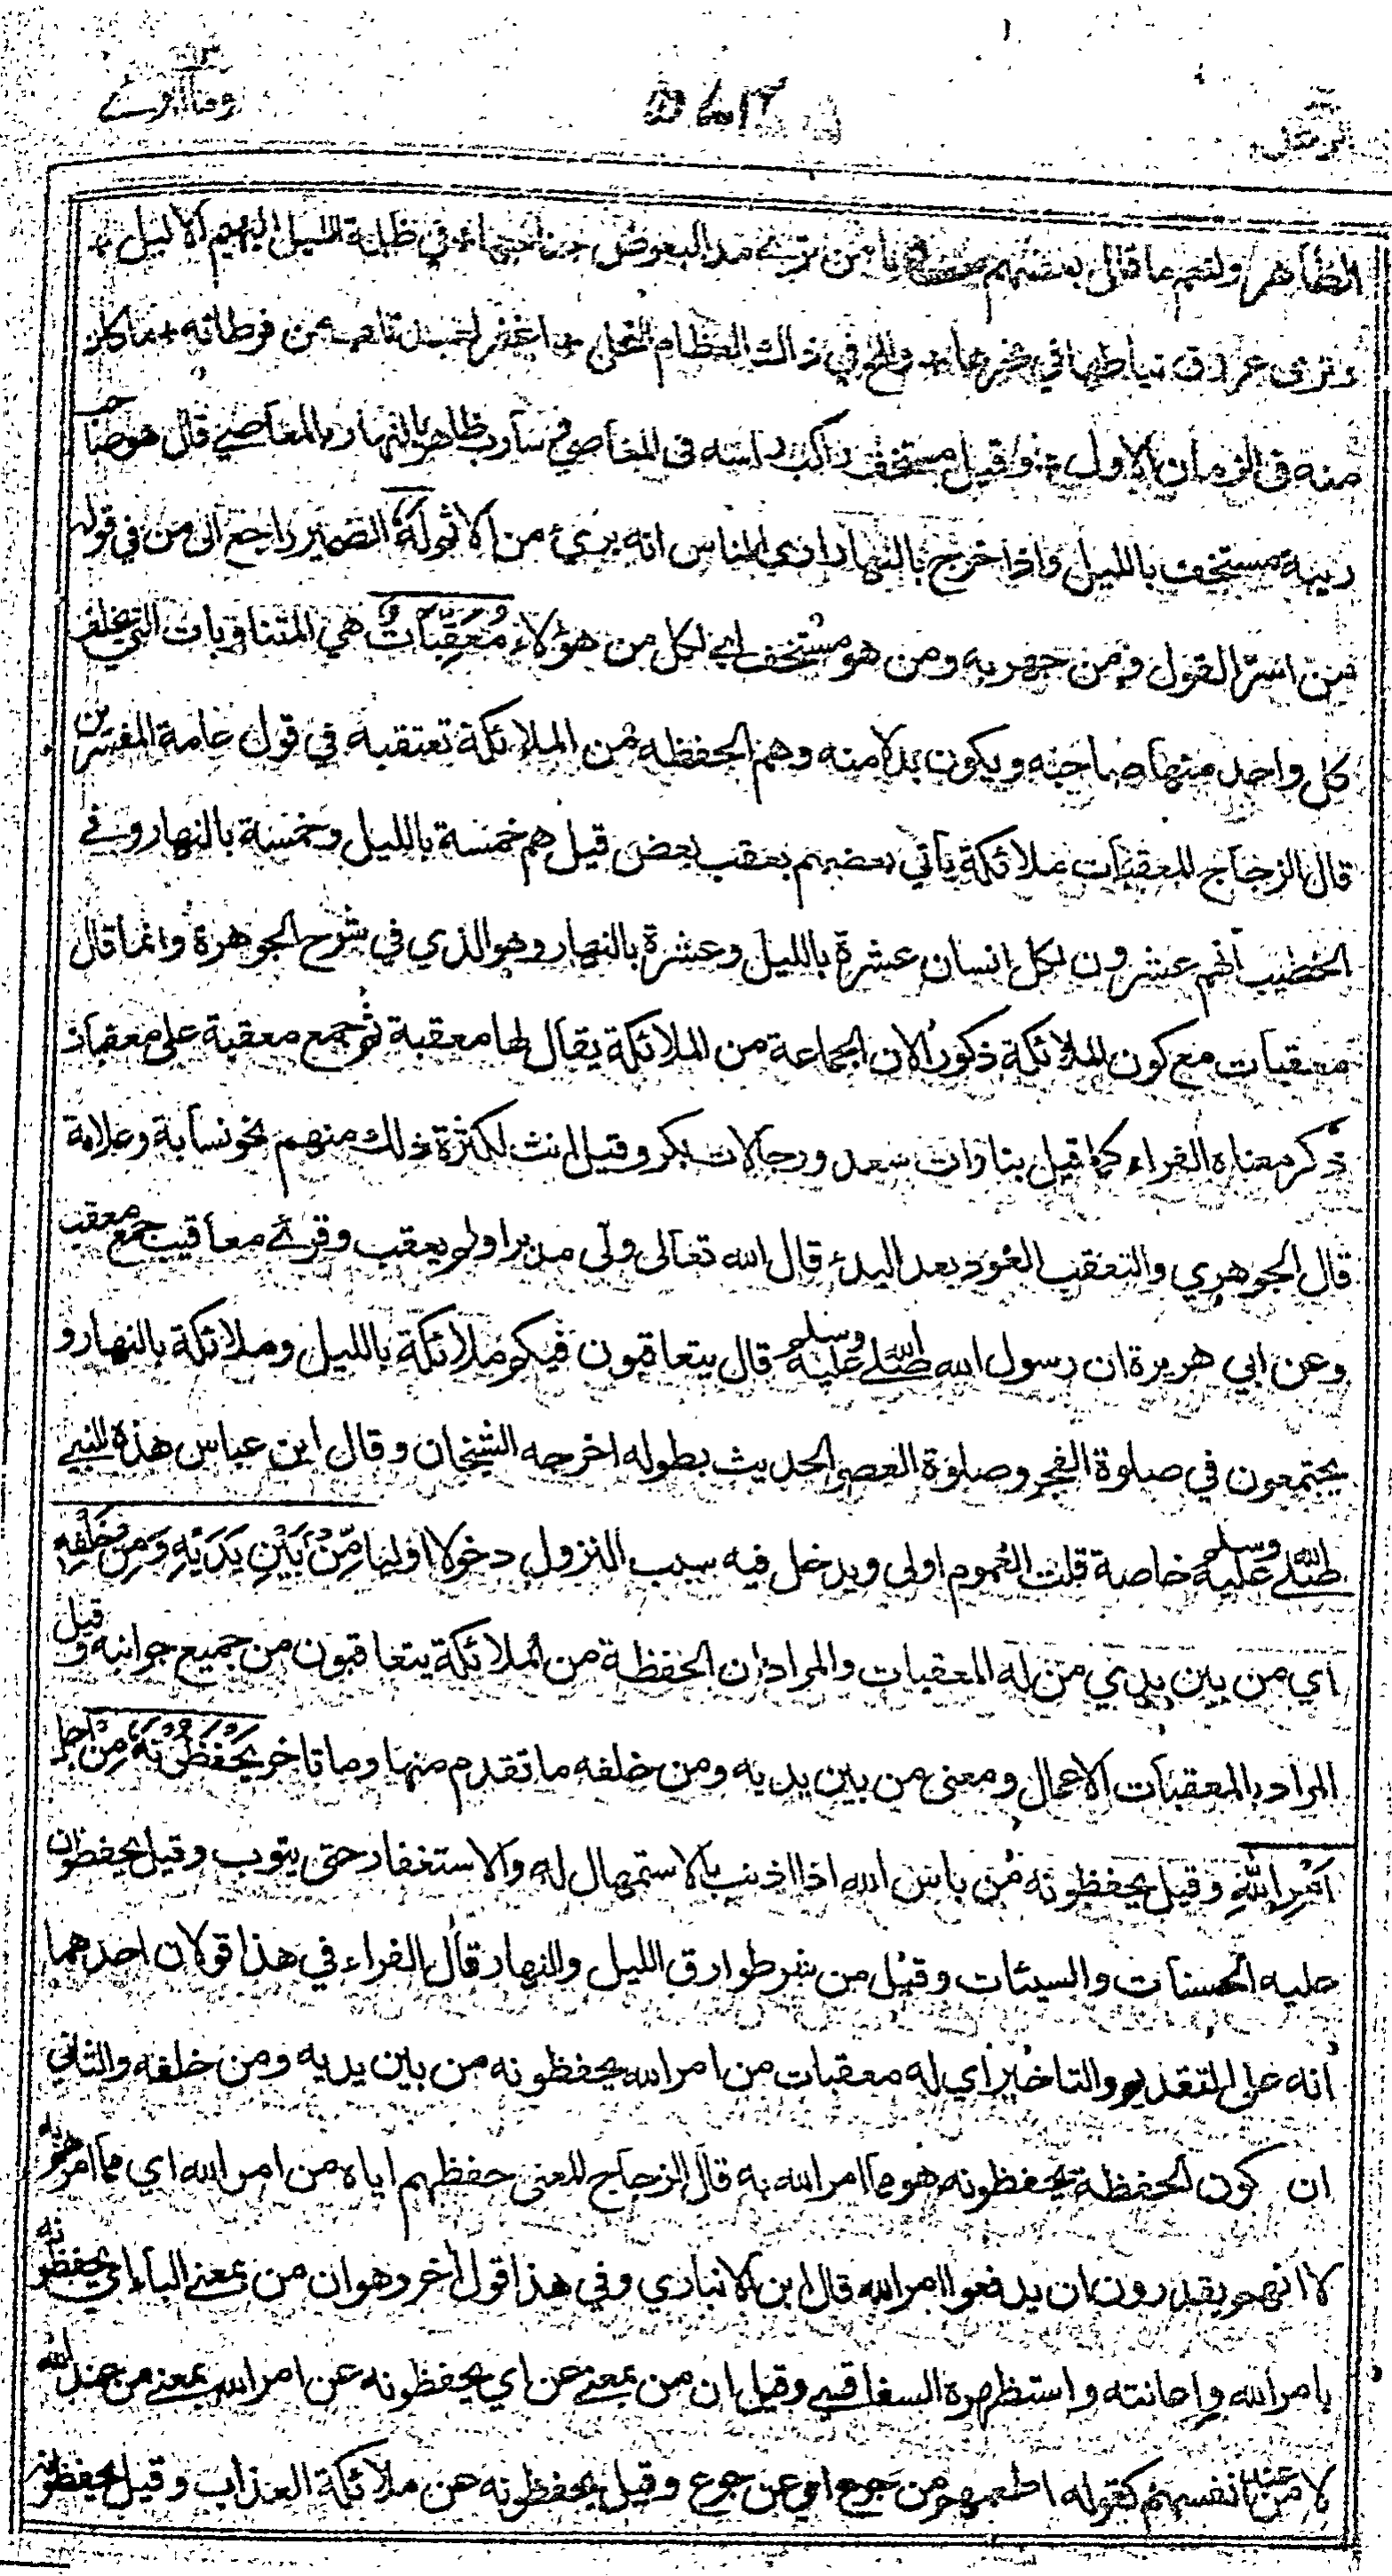 الظاهر ولنعم ما قال بعضهم يا من ترى مد البعوض جناحها في ظلمة الليل البهيم الاليل
وترى عروق نياطها في نحرها والمخ في تلك العظام النحل اغفر لعبد تاب عن فرطاته ما كان
منه في الزمان الاول وقيل مستخف راكب راسه في المعاصي وسارب ظاهر بالنهار بالمعاصي قال هو صاحب
ريبة مستخف بالليل واذا خرج بالنهار ارى الناس انه بريء من الاثم لَهُ الضمير راجع الى من في قوله
من اسر القول ومن جهر به ومن هو مستخف اي لكل من هؤلاء مُعَقِّبَاتٌ هي المتناوبات التي يخلف
كل واحد منها صاحبه ويكون بدلا منه وهم الحفظة من الملائكة تعتقبه في قول عامة المفسرين
قال الزجاج المعقبات ملائكة ياتي بعضهم بعقب بعض قيل هم خمسة بالليل وخمسة بالنهار وفي
الخطيب انهم عشرون لكل انسان عشرة بالليل وعشرة بالنهار وهو الذي في شرح الجوهرة وانما قال
معقبات مع كون الملائكة ذكورا لان الجماعة من الملائكة يقال لها معقبة ثم جمع معقبة على معقبات
ذكر معناه الفراء كما قيل بناوات سعد ورجالات بكر وقيل انث لكثرة ذلك منهم نحو نسابة وعلامة
قال الجوهري والتعقب العود بعد البدء قال الله تعالى ولى مدبرا ولم يعقب وقرئ معاقيب جمع معقب
وعن ابي هريرة ان رسول الله صلى الله عليه وسلم قال يتعاقبون فيكم ملائكة بالليل وملائكة بالنهار و
يجتمعون في صلوة الفجر وصلوة العصر الحديث بطوله اخرجه الشيخان وقال ابن عباس هذه للنبي
صلى الله عليه وسلم خاصة قلت العموم اولى ويدخل فيه سبب النزول دخولا اوليا مِّنْ بَيْنِ يَدَيْهِ وَمِنْ خَلْفِهِ
اي من بين يدي من له المعقبات والمراد ان الحفظة من الملائكة يتعاقبون من جميع جوانبه وقيل
المراد بالمعقبات الاعمال ومعنى من بين يديه ومن خلفه ما تقدم منها وما تاخر يَحْفَظُوْنَهُ مِنْ
اَمْرِ اللهِ وقيل يحفظونه من باس الله اذا اذنب بالاستمهال له والاستغفار حتى يتوب وقيل يحفظون
عليه الحسنات والسيئات وقيل من شر طوارق الليل والنهار قال الفراء في هذا قولان احدهما
انه على التقديم والتاخير اي له معقبات من امر الله يحفظونه من بين يديه ومن خلفه والثاني
ان كون الحفظة يحفظونه هو مما امر الله به قال الزجاج المعنى حفظهم اياه من امر الله اي مما امرهم به
لا انهم يقدرون ان يدفعوا امر الله قال ابن الانباري وفي هذا قول اخر وهو ان من بمعنى الباء اي يحفظونه
بامر الله واعانته واستظهره السفاقسي وقيل ان من بمعنى عن اي يحفظونه عن امر الله بمعنى من عند الله
لا من عند انفسهم كقوله اطعمهم من جوع اي عن جوع وقيل يحفظونه من ملائكة العذاب وقيل يحفظونه